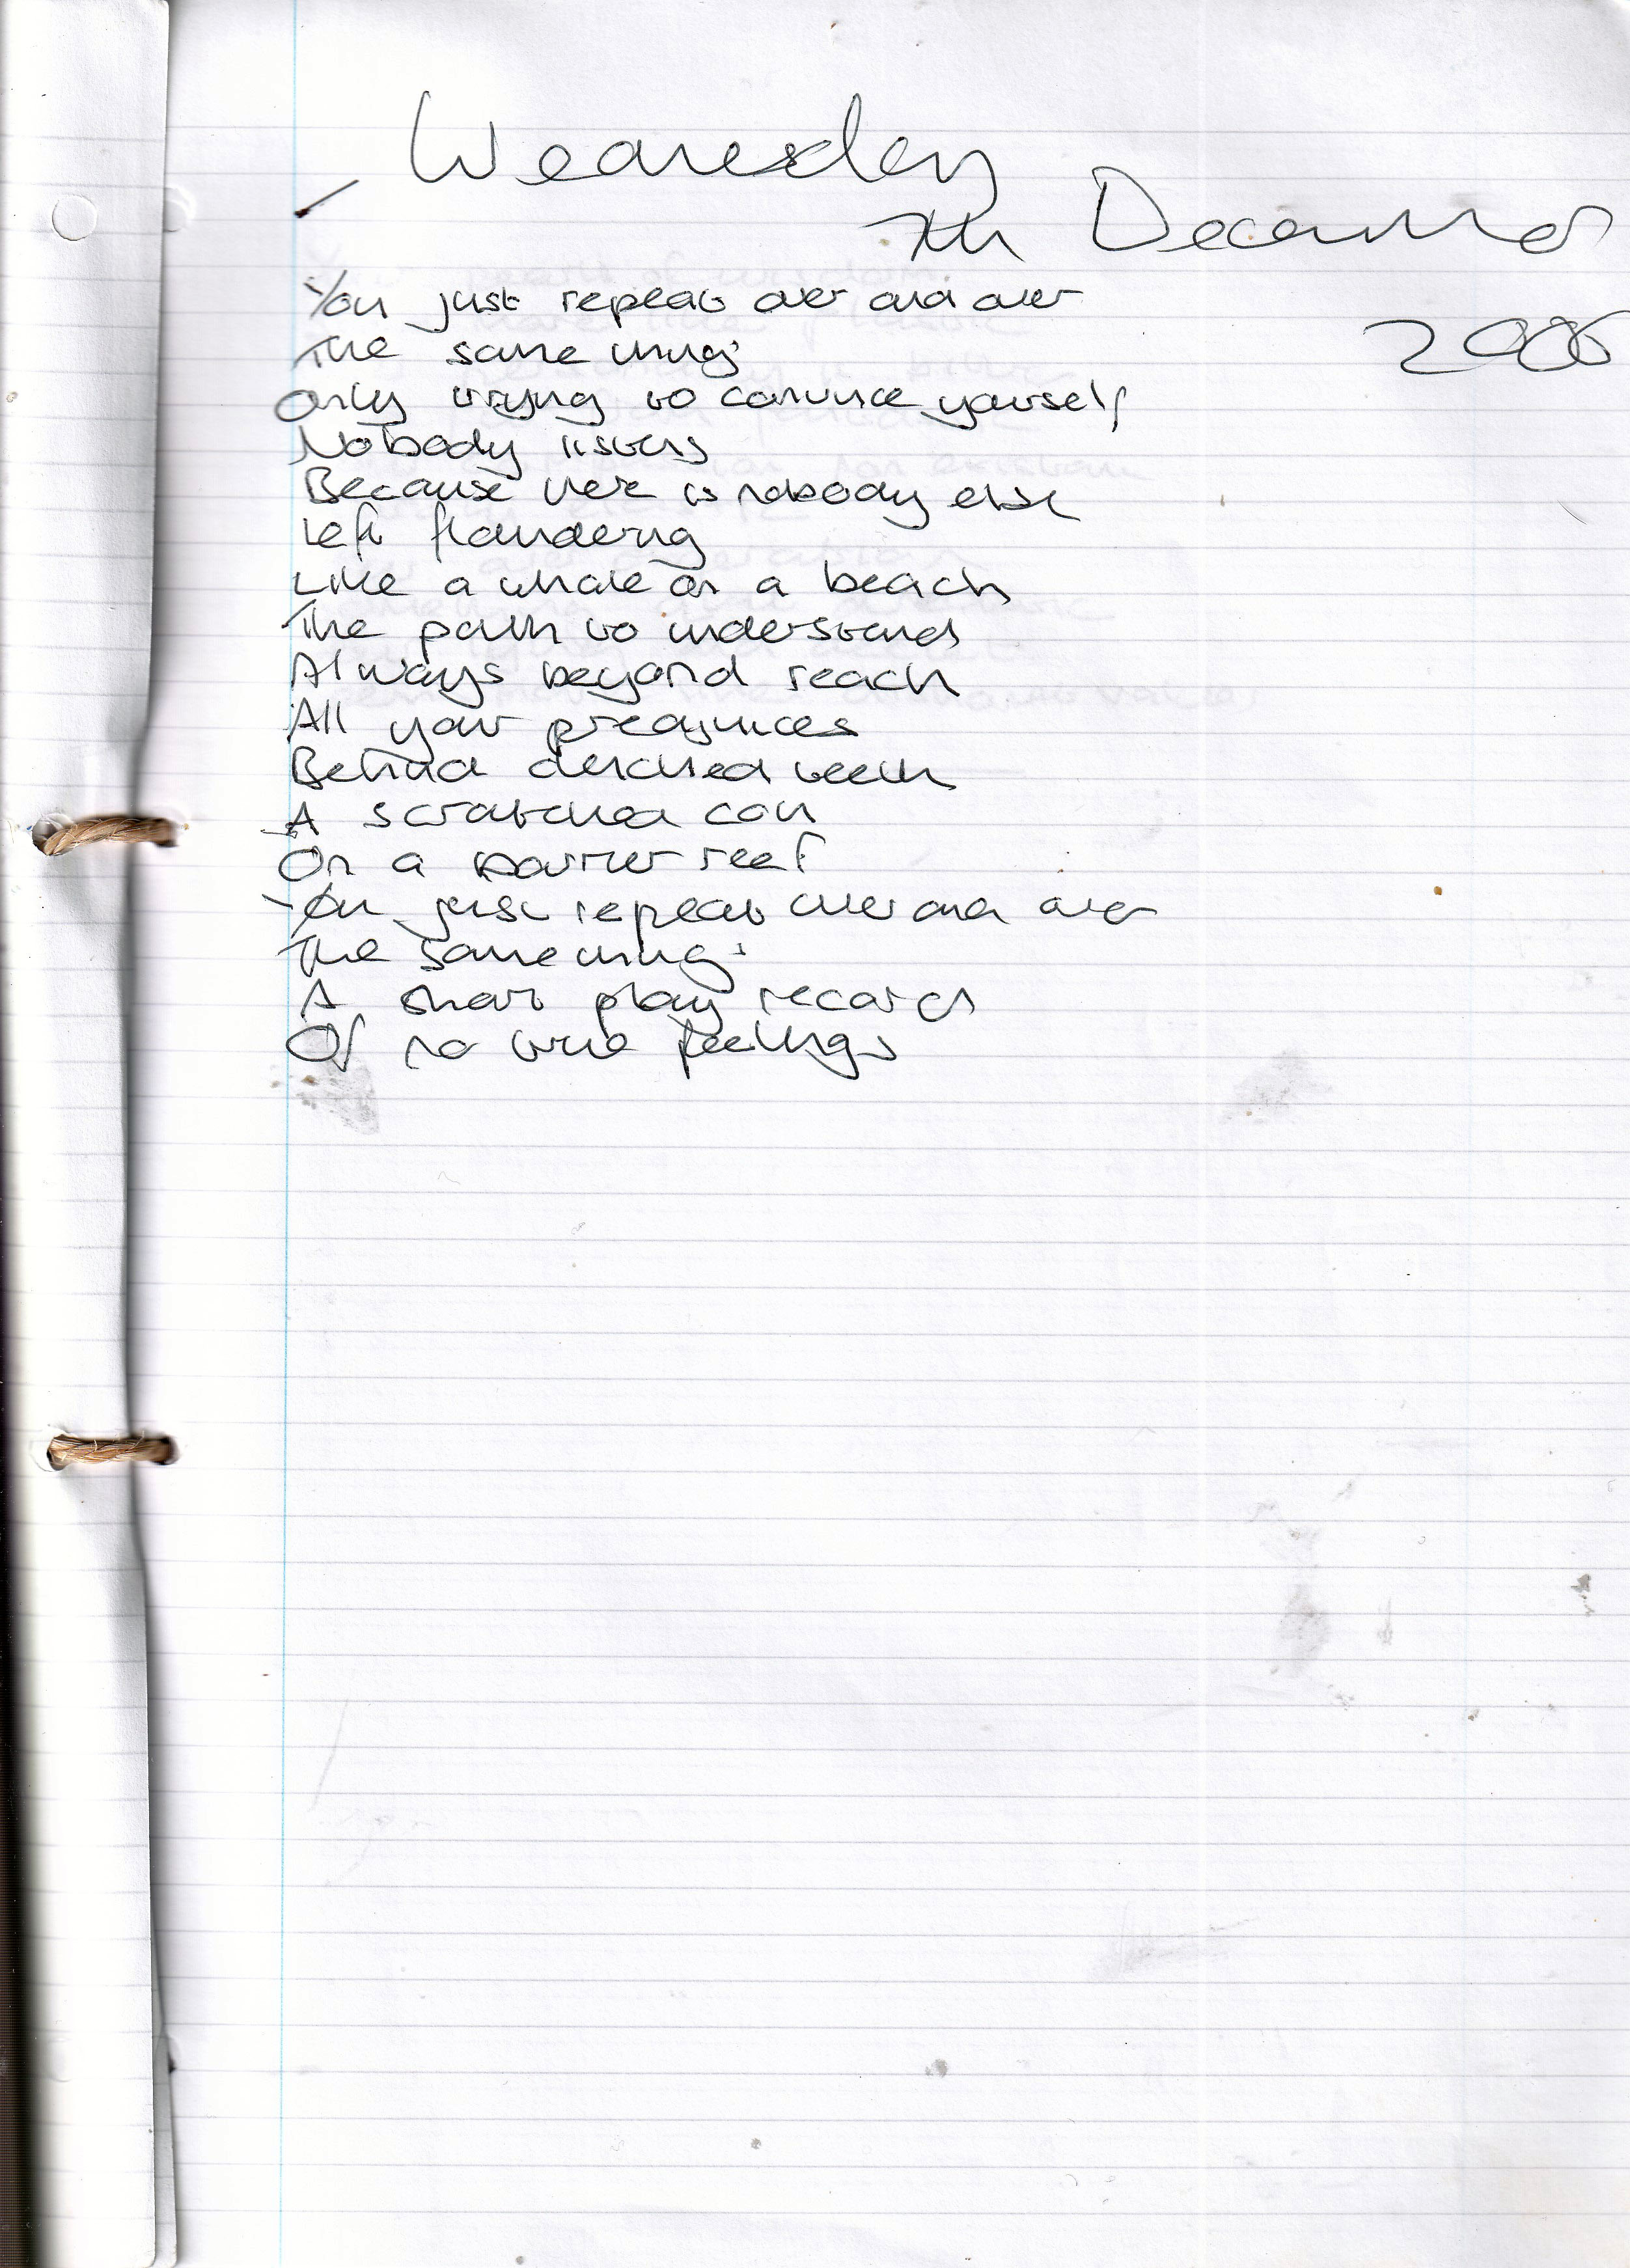 Wednesday
7th December
2006
You just repeat over and over
The same things
Only trying to convince yourself
Nobody listens
Because there is nobody else
Left floundering
Like a whale on a beach
The path to understand
Always beyond reach
All your prejudices
Behind clenched teeth
A scratched coin
On a barrier reef
You just repeat over and over
The same things
A short play record
Of no true feelings